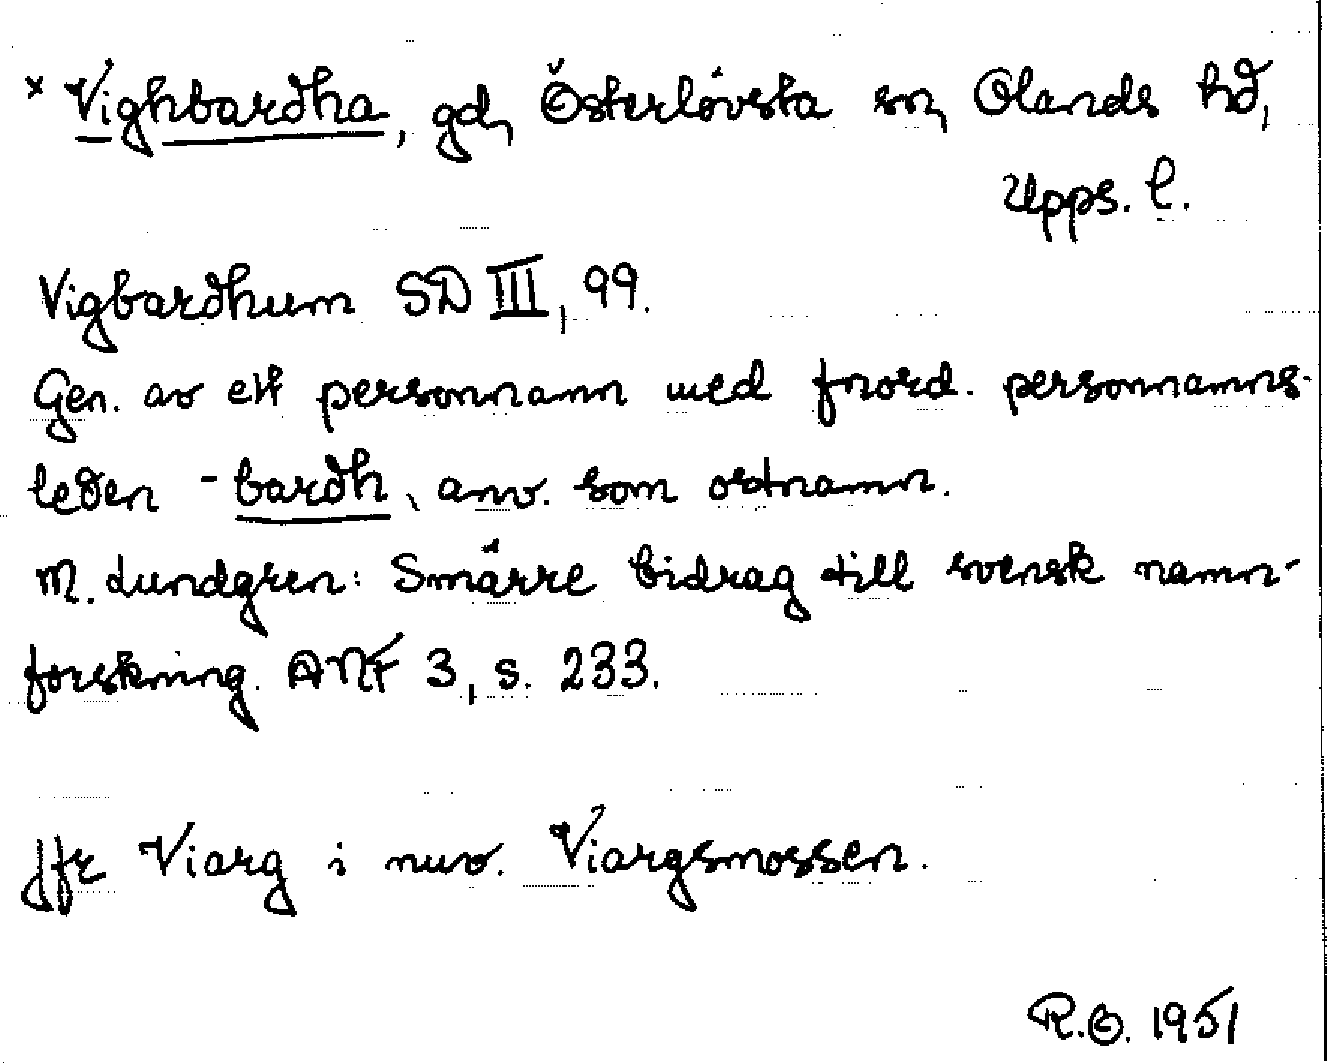 × Vighbardha, gd, Österlövsta sn, Olands hd,
Upps. l.
Vigbardhum SD III, 99.
Gen. av ett personnamn med fnord. personnamns-
leden -bardh, anv. som ortnamn.
M. Lundgren: Smärre bidrag till svensk namn-
forskning. ANF 3, s. 233.
Jfr Viarg i nuv. Viargsmossen.
R.O. 1951